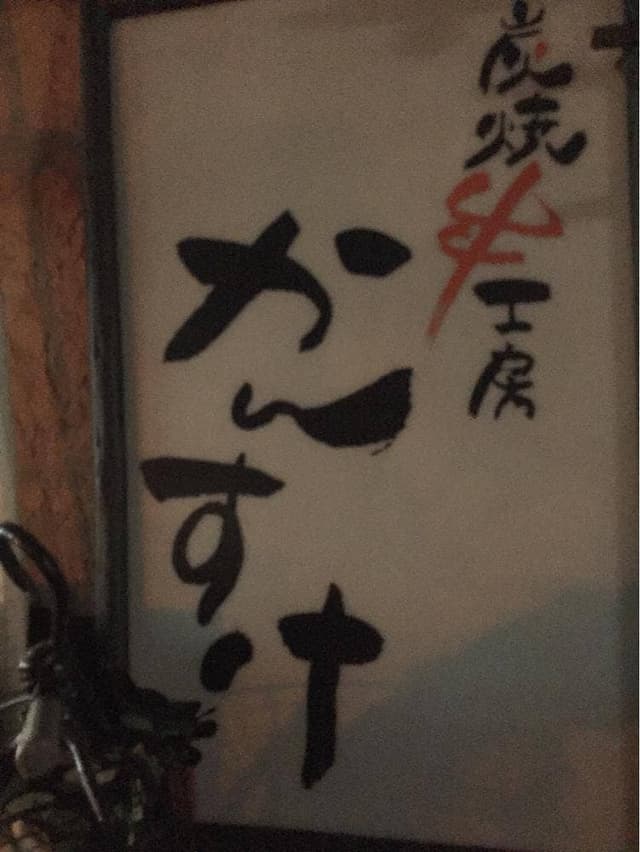 炭焼牛工房
かんすけ